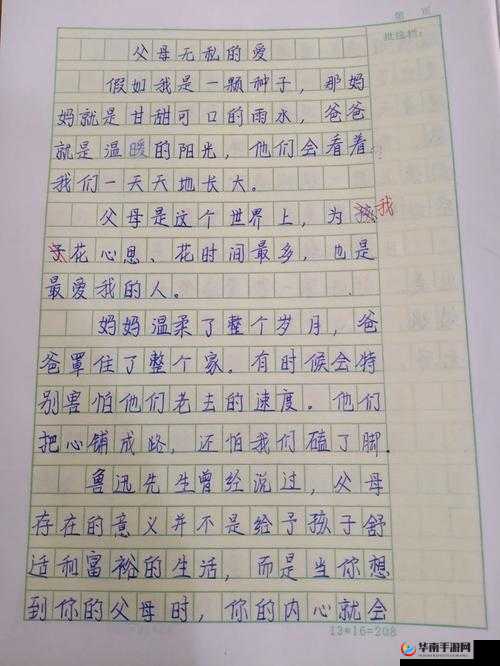 第 页
批注栏:
父母无私的爱
假如我是一颗种子，那妈
妈就是甘甜可口的雨水，爸爸
就是温暖的阳光，他们会看着
我们一天天地长大。
父母是这个世界上，为孩我
子花心思、花时间最多，也是
最爱我的人。
妈妈温柔了整个岁月，爸
爸罩住了整个家。有时候会特
别害怕他们老去的速度。他们
把心铺成路，还怕我们磕了脚.
鲁迅先生曾经说过，父母
存在的意义并不是给予孩子舒
适和富裕的生活，而是当你想
到你的父母时，你的内心就会
13*16=208
华南手游网